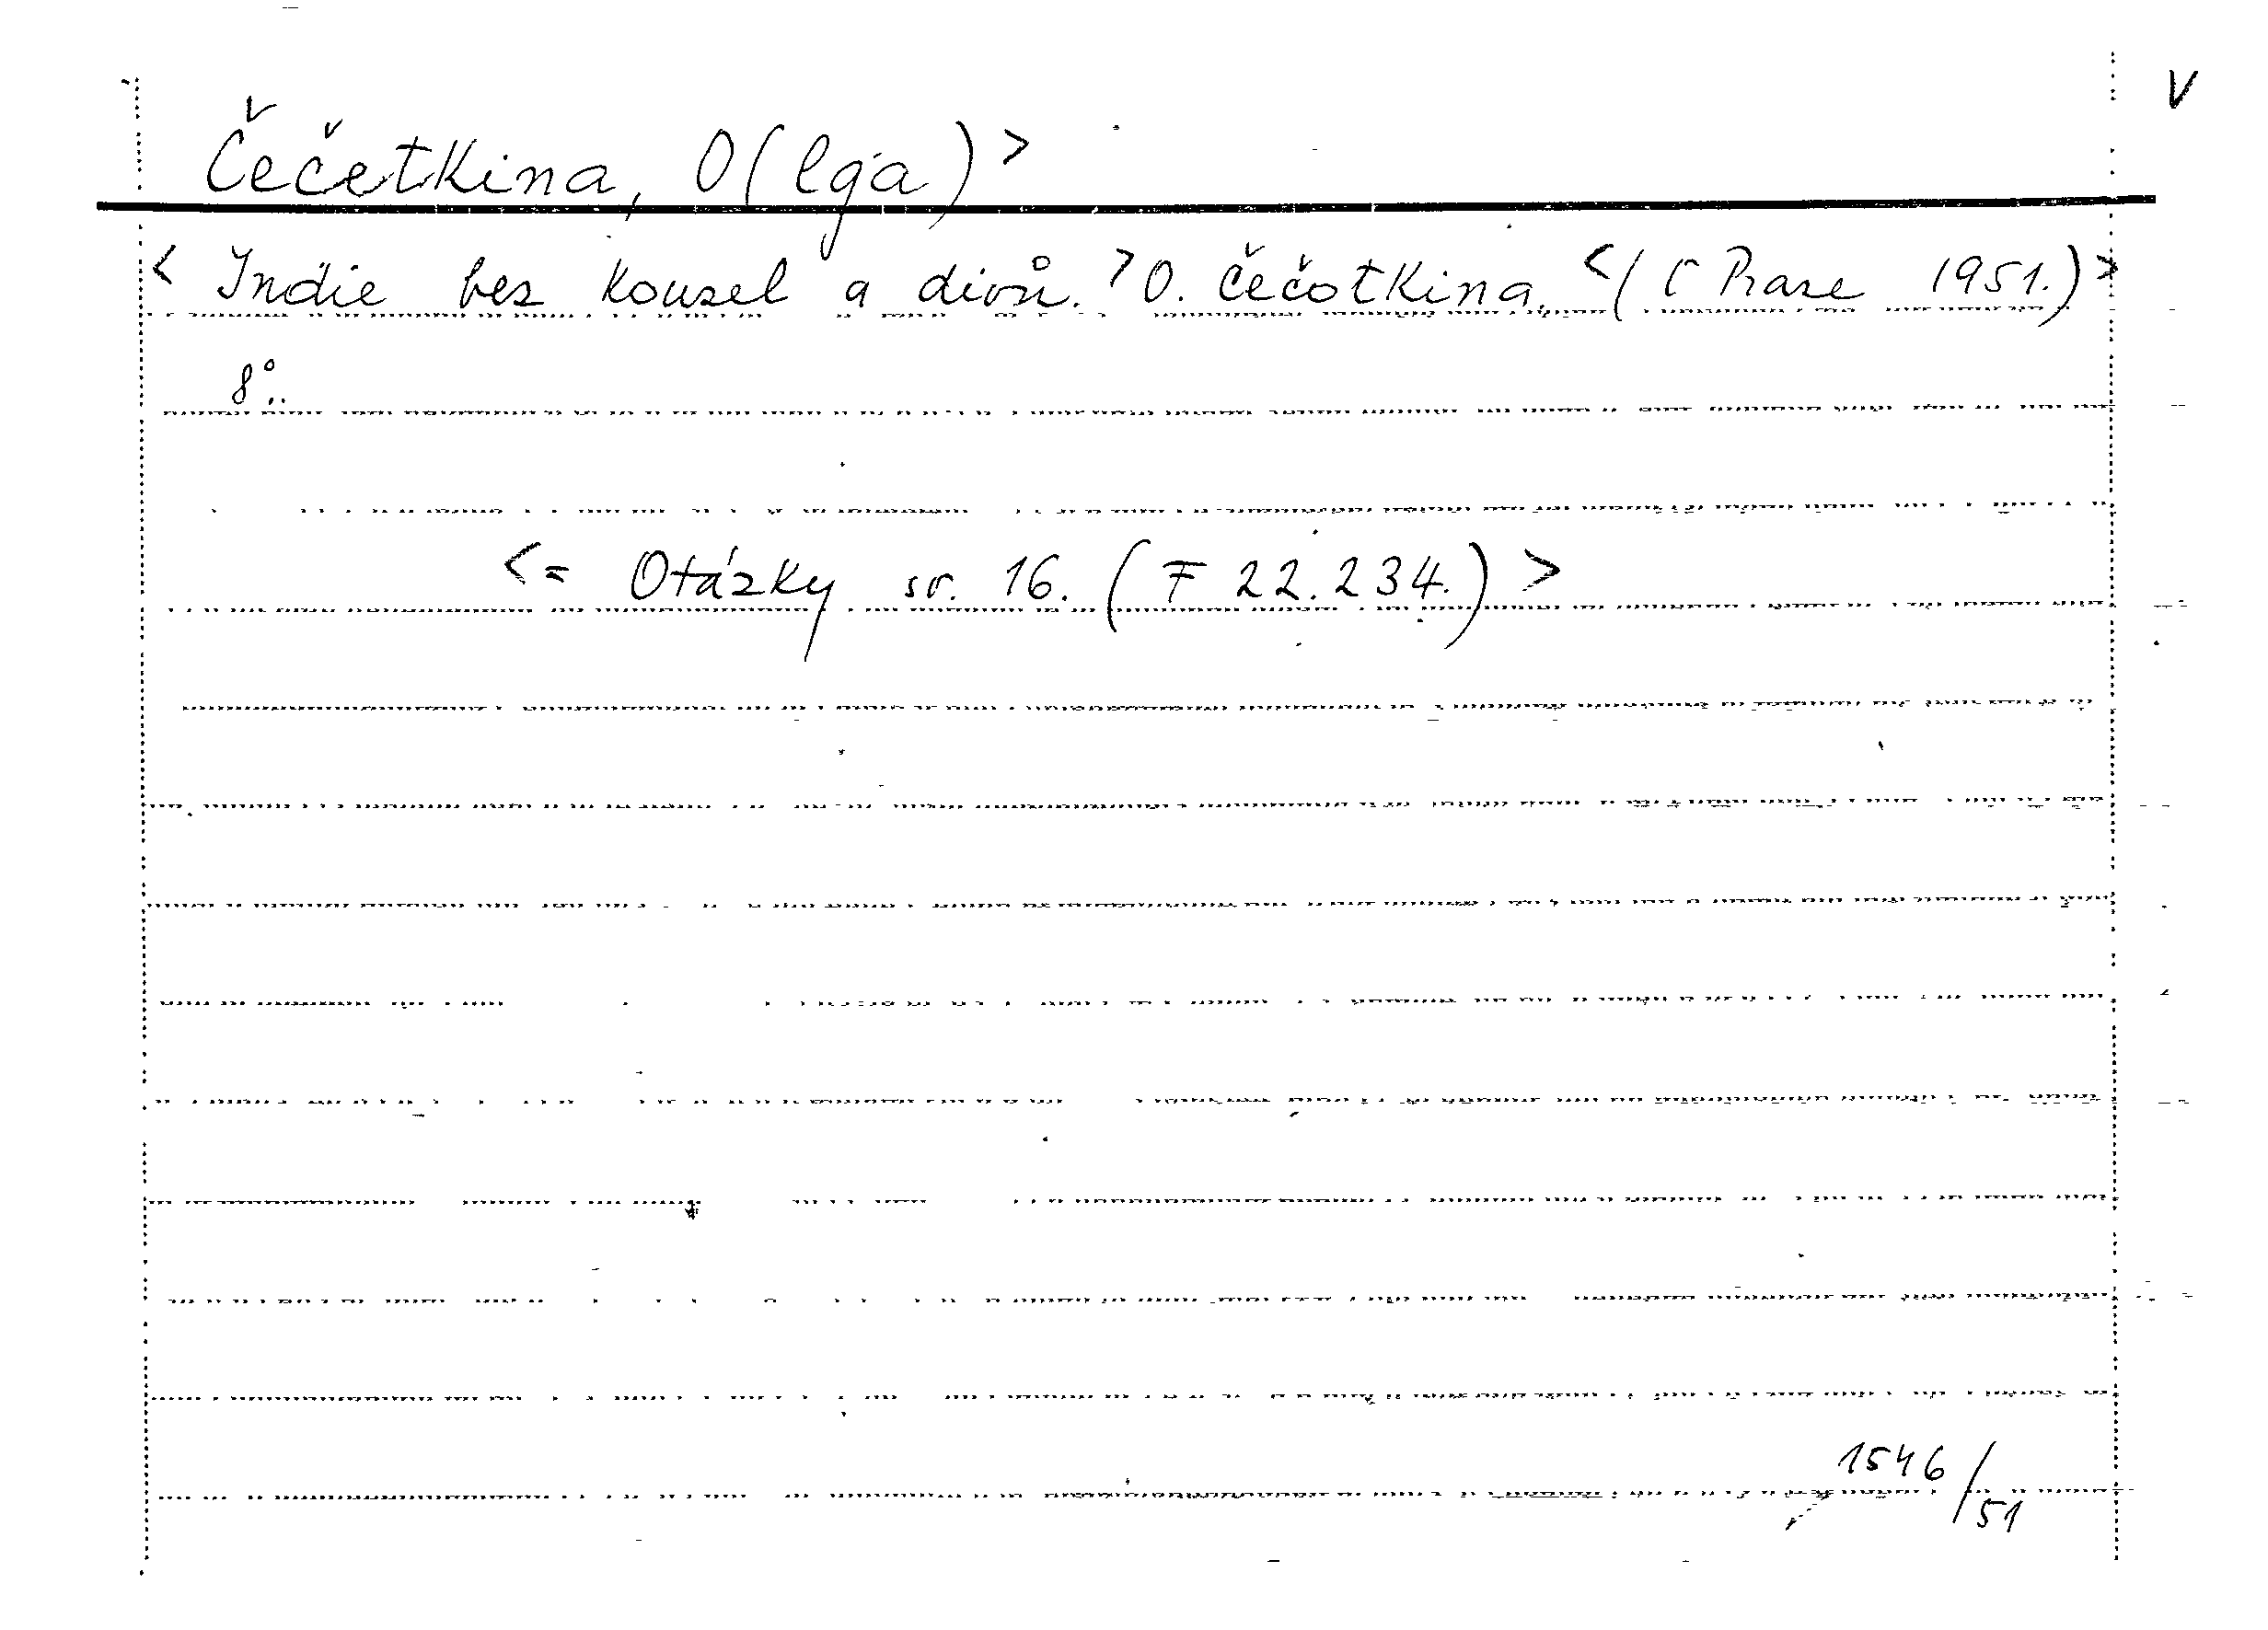 V
Čečetkina, O(lga)>
< Indie bez kouzel a divů. > O. Čečotkina. <( V Praze 1951.)>
8°..
<= Otázky sv. 16. (F 22.234.)>
1546/51